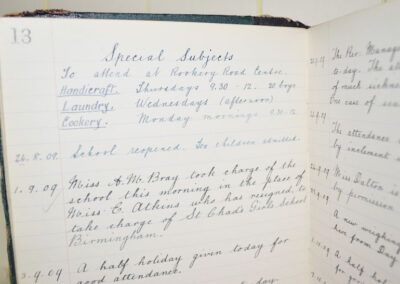 13
Special Subjects
To attend at Rookery Road Centre.
Handicraft. Thursdays 9.30 - 12. 20 boys
Laundry. Wednesdays (afternoon)
Cookery. Monday mornings 9.30-12
24.8.09. School reopened. children admitted.
1.9.09. Miss A. M. Bray took charge of the
school this morning in the place of
Miss E. Atkins who has resigned to
take charge of St Chad's Girls School
Birmingham.
3.9.09 A half holiday given today for
good attendance.
The Rev. Manage
to-day. The att
of much sickne
The attendance
by inclement
Miss Dalton is
by permission
A new weighing
from Day
A half hol
for